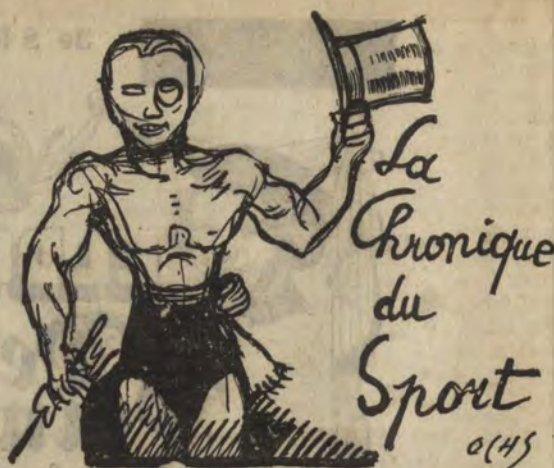 La
Chronique
du
Sport
OCHS